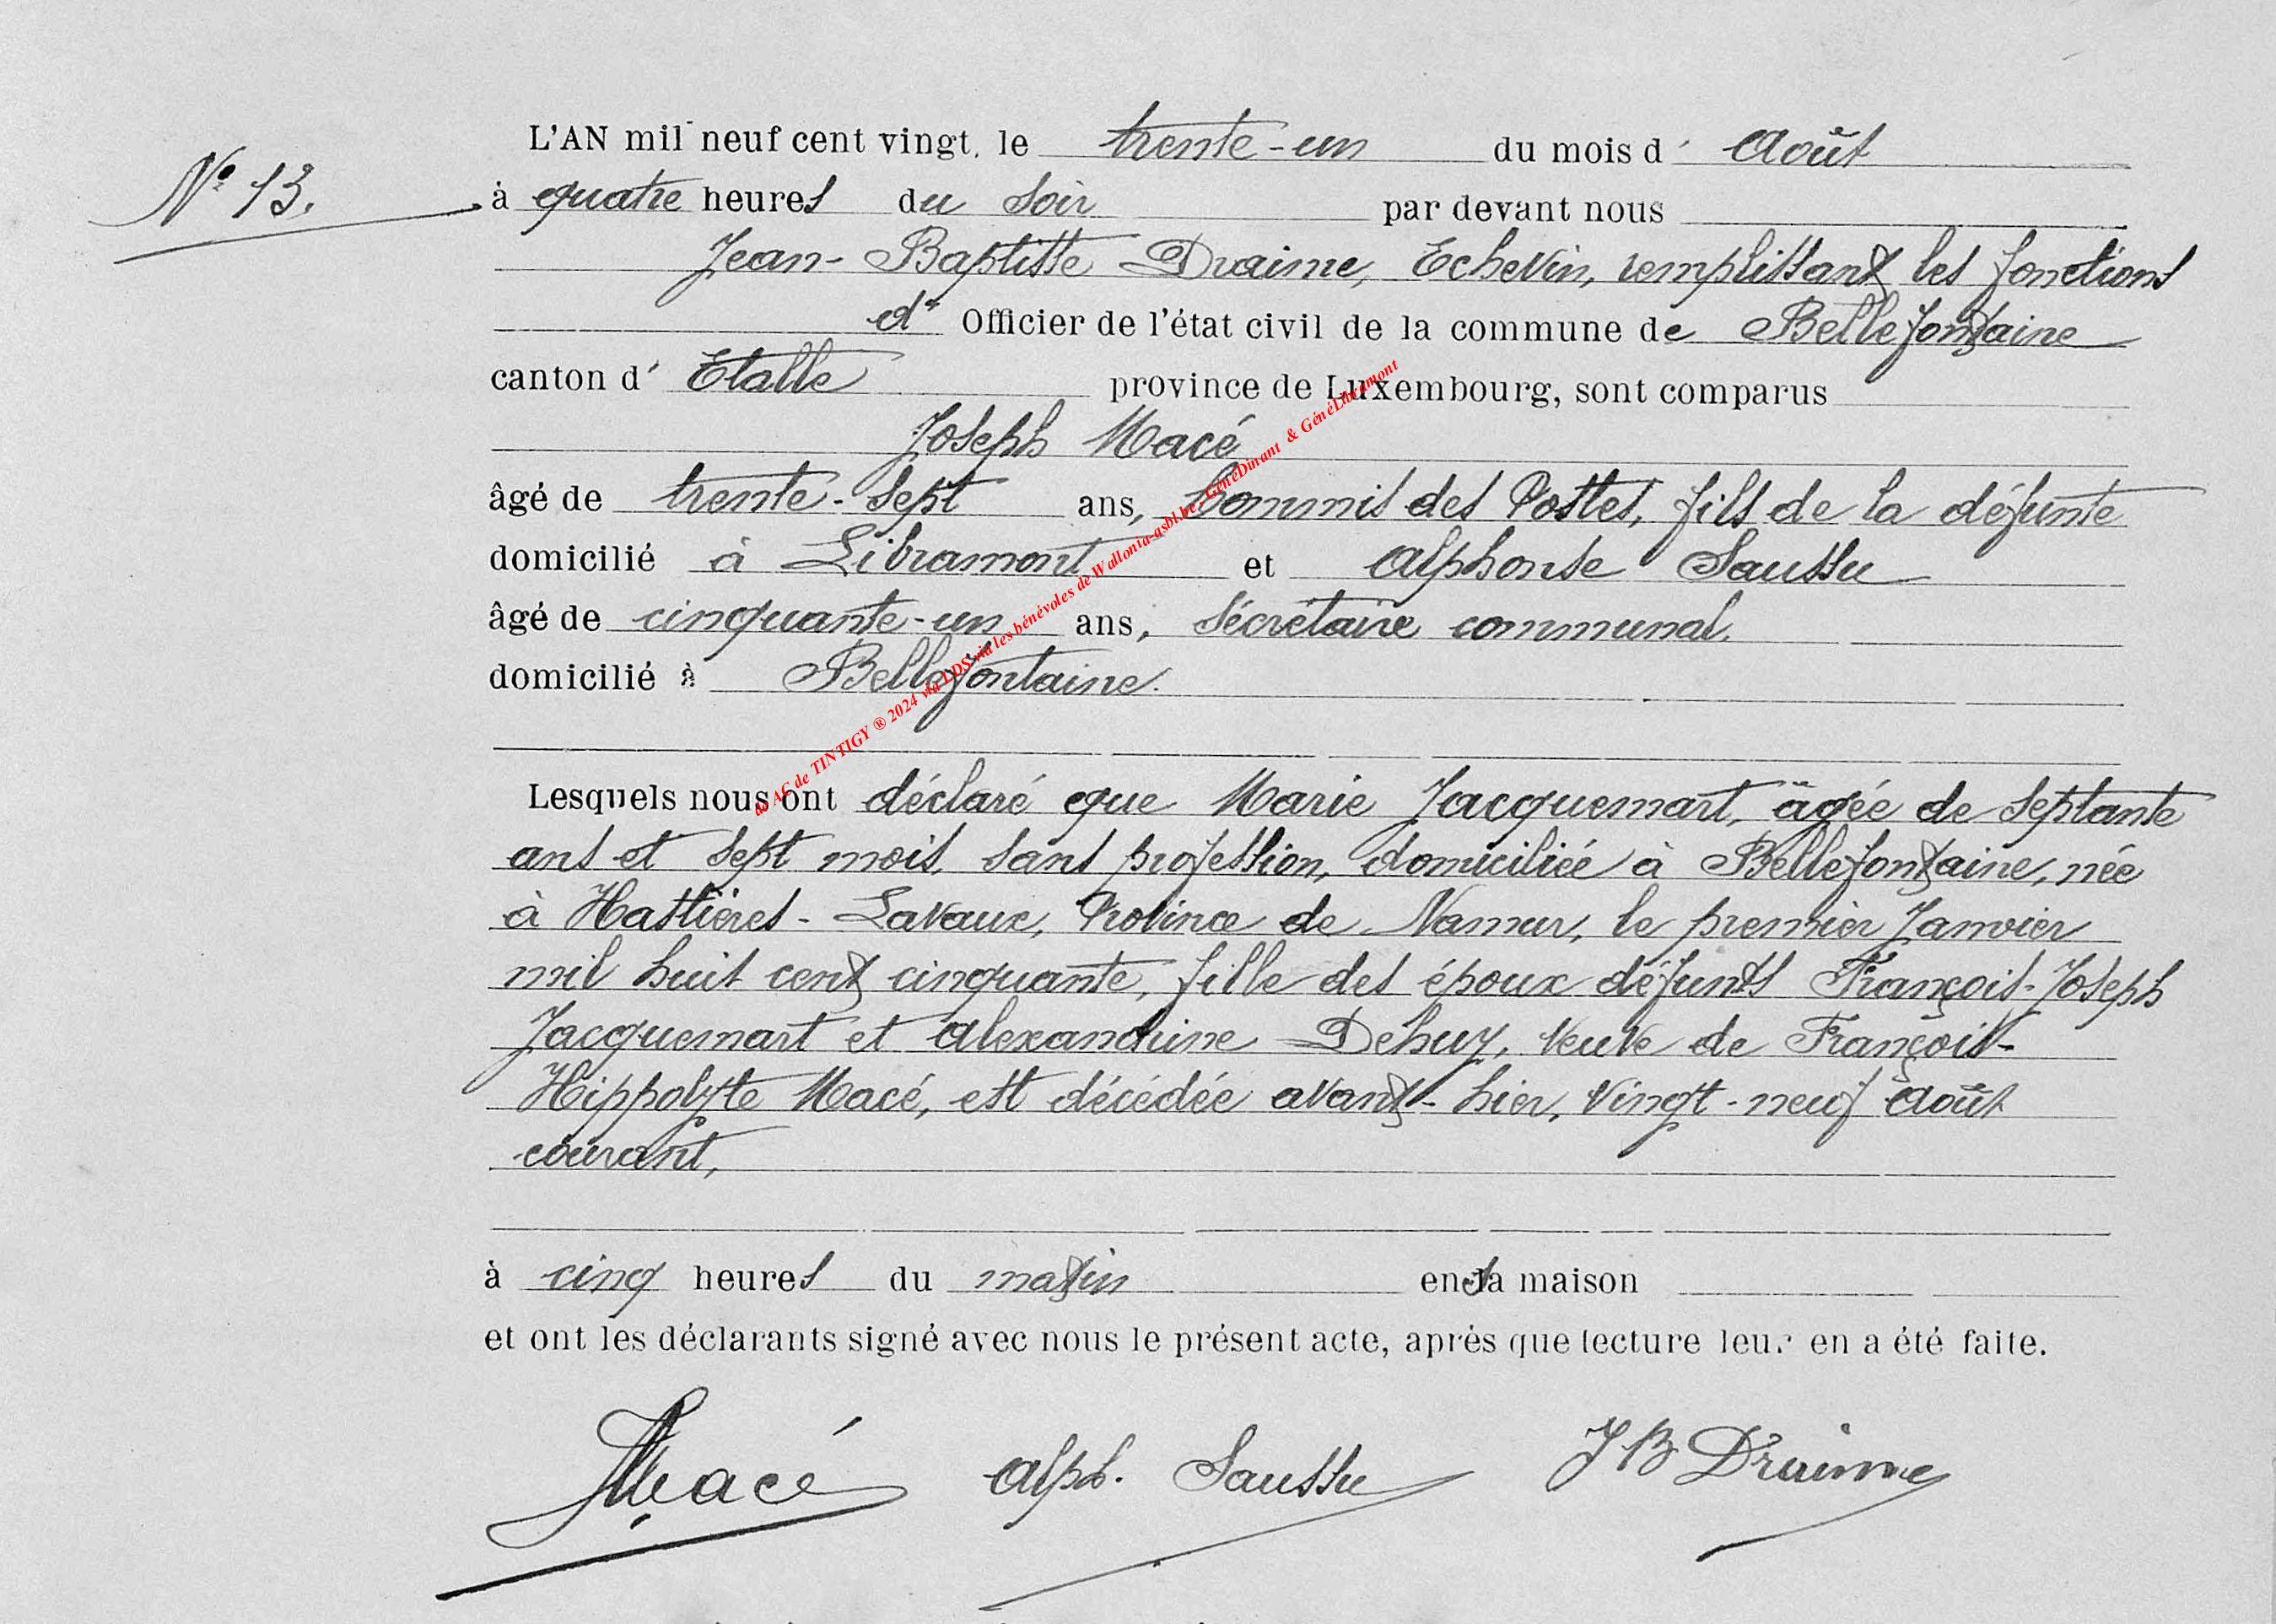 N° 13.
L'AN mil neuf cent vingt, le trente-un du mois d' Août
à quatre heures du soir par devant nous
Jean-Baptiste Draime, Echevin, remplissant les fonctions
d' Officier de l'état civil de la commune de Bellefontaine
canton d' Etalle province de Luxembourg, sont comparus
Joseph Macé
âgé de trente-sept ans, Commis des Postes, fils de la défunte
domicilié à Libramont et Alphonse Saussu
âgé de cinquante-un ans, Sécrétaire communal,
domicilié à Bellefontaine.
Lesquels nous ont déclaré que Marie Jacquemart, âgée de septante
ans et sept mois, sans profession, domiciliée à Bellefontaine, née
à Hastières-Lavaux, Province de Namur, le premier Janvier
mil huit cent cinquante, fille des époux défunts François-Joseph
Jacquemart et Alexandrine Dehuy, veuve de François-
Hippolyte Macé, est décédée avant-hier, vingt-neuf Août
courant,
à cinq heures du matin en sa maison
et ont les déclarants signé avec nous le présent acte, après que lecture leur en a été faite.
Macé Alph. Saussu J B Draime
de AC de TINTIGY ® 2024 via LDS via les bénévoles de Wallonia-asbl.be, GénéDinant & GénéLibramont